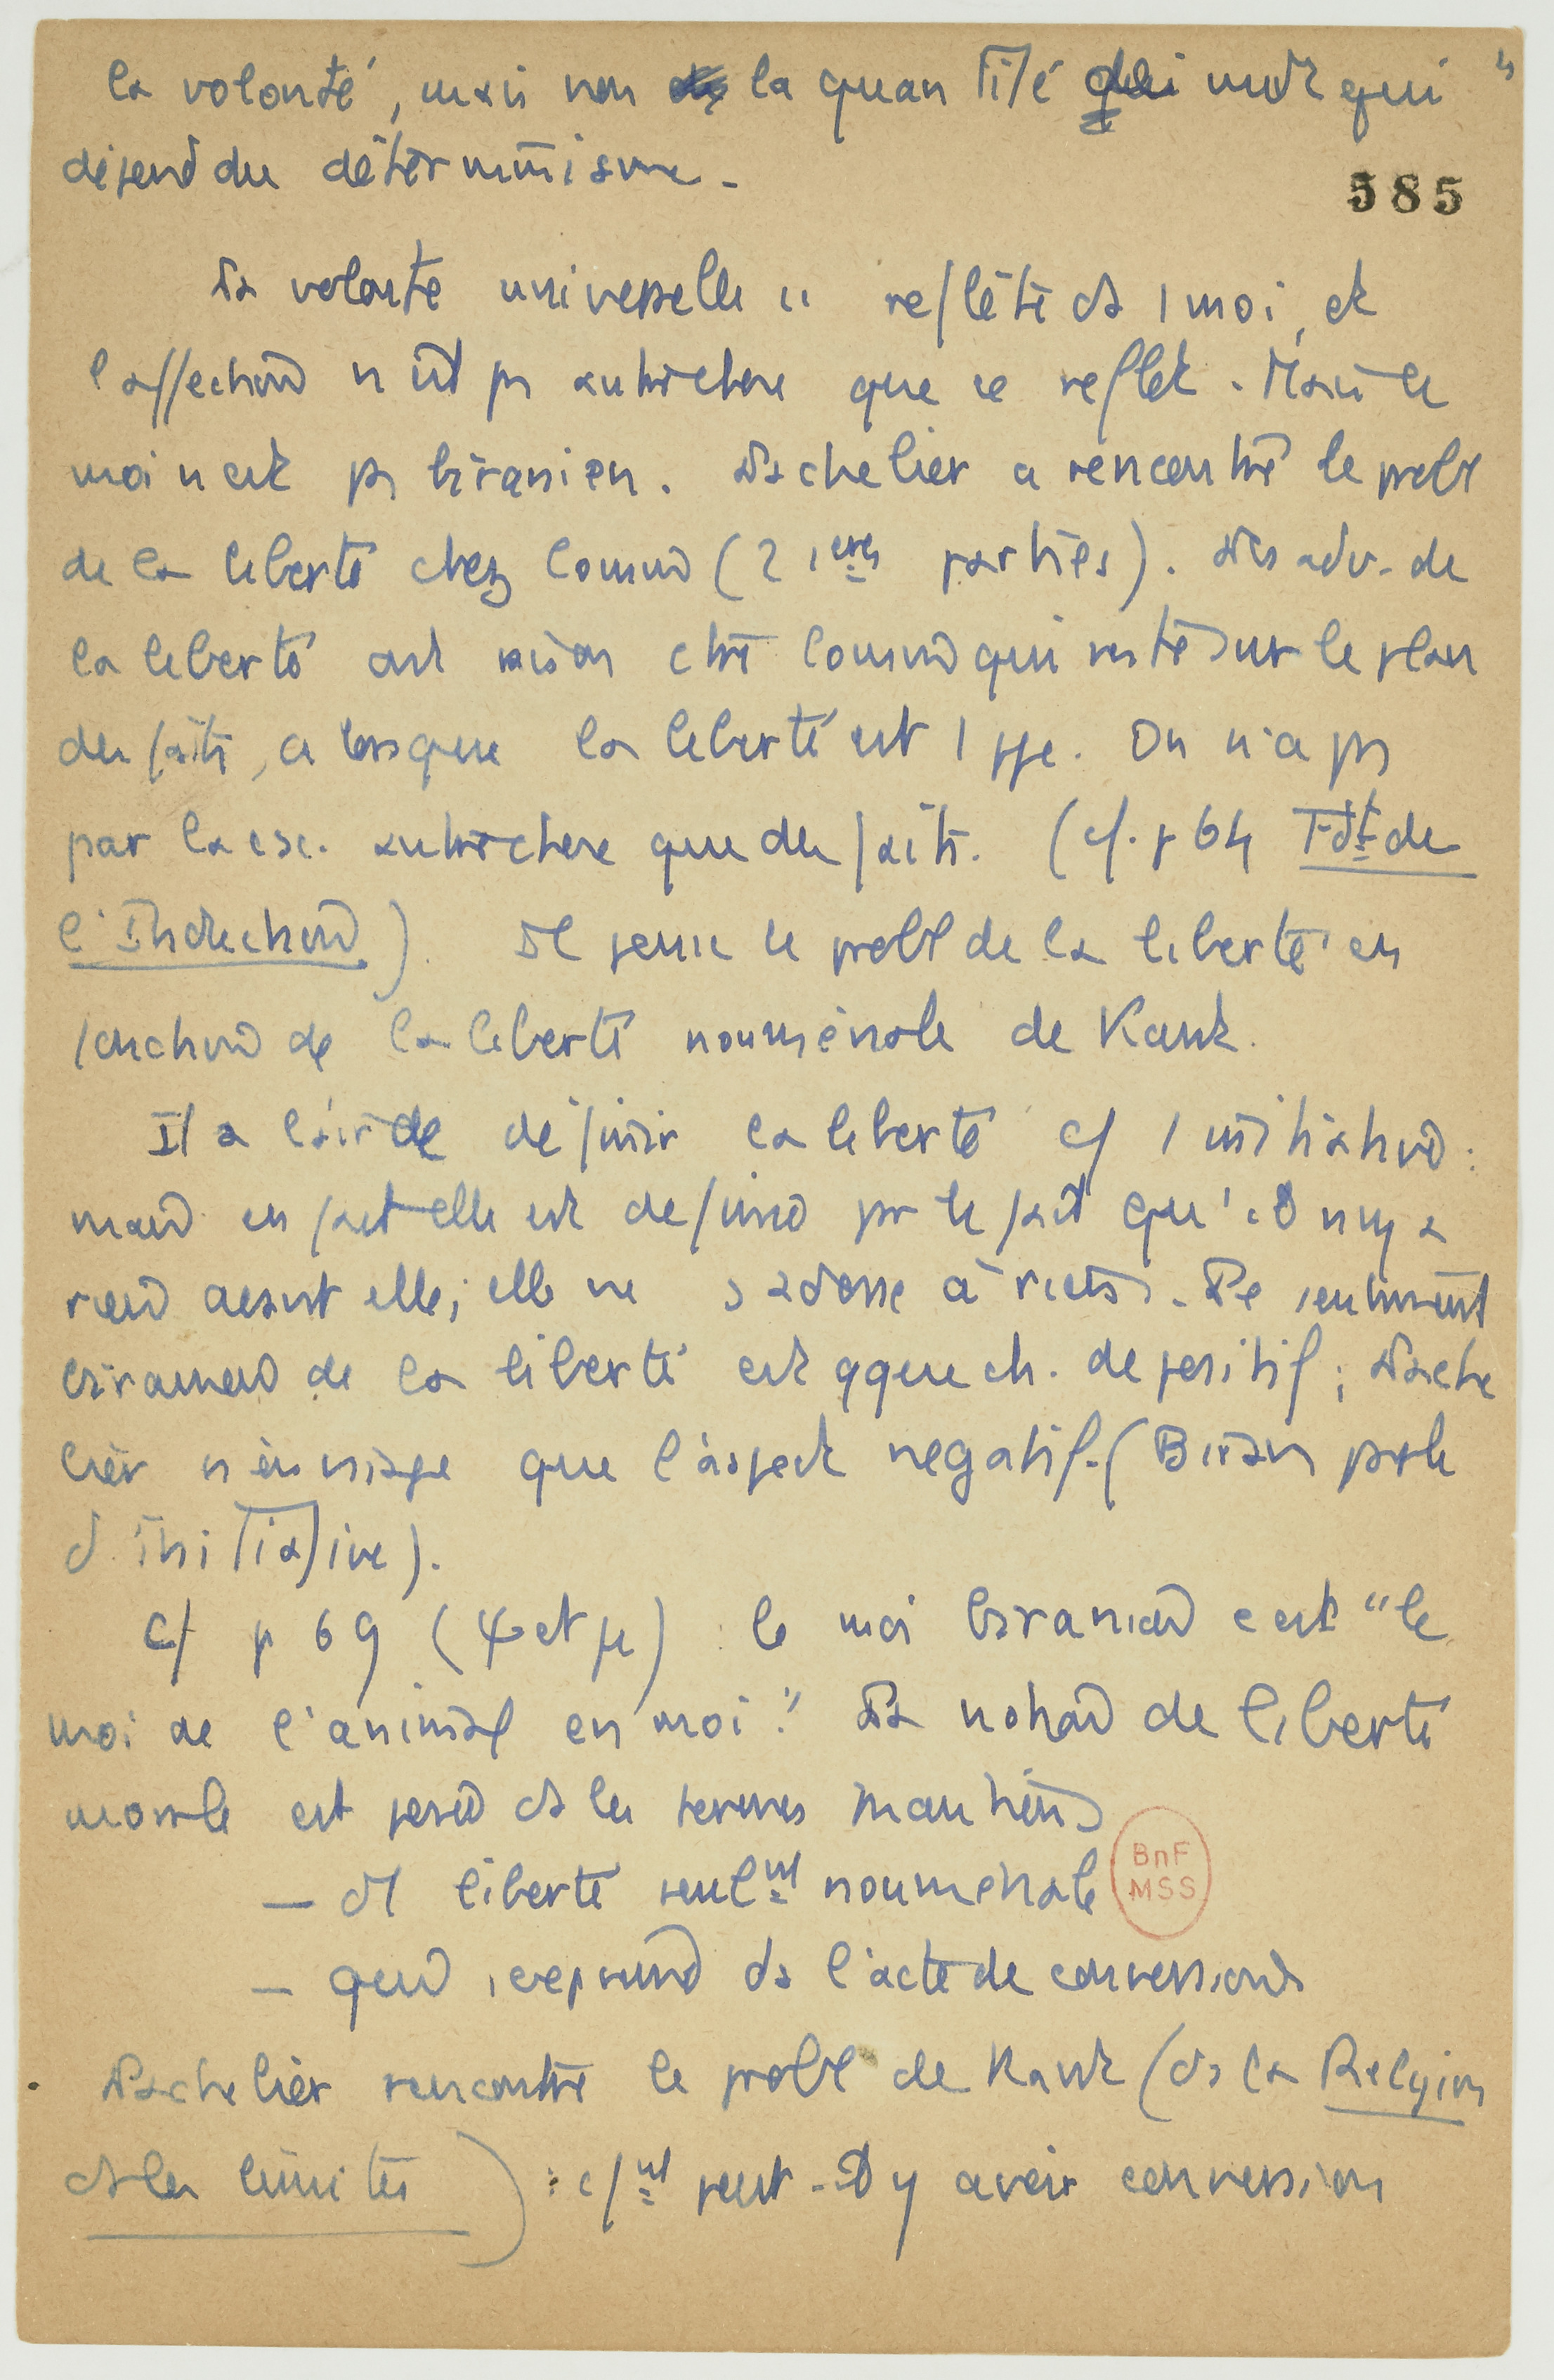 la volonté, mais non la quantité qui
dépend du déterminisme.
585
La volonté universelle se reflète ds 1 moi, et
l'affection n'est ps autre chose que ce reflet. Mais le
moi n'est ps biranien. Lachelier a rencontré le probl
de la liberté chez Cousin (2 1ères parties). Les adv. de
la liberté ont raison ctre Cousin qui reste sur le plan
des faits, alors que la liberté est 1 ppe. On n'a ps
par la csc. autre chose que des faits. (cf. p 64 Fdt de
l'Induction). Il pense le probl de la liberté en
fonction de la liberté nouménale de Kant.
Il a l'air de définir la liberté cf 1 initiation :
mais en fait elle est définie par le fait qu'il n'y a
rien avant elle ; elle ne s'adosse à rien. Le sentiment
biranien de la liberté est qque ch. de positif ; Lache
lier n'envisage que l'aspect négatif. (Biran parle
d'initiative).
Cf p 69 (ψ et μ) le moi biranien c'est "le
moi de l'animal en moi". La notion de liberté
morale est posée ds les termes kantiens
— d liberté seulmt nouménale
— qui reprend ds l'acte de conversion
Lachelier rencontre le probl de Kant (ds la Religion
ds les limites) : cfmt peut-il y avoir conversion
BnF
MSS